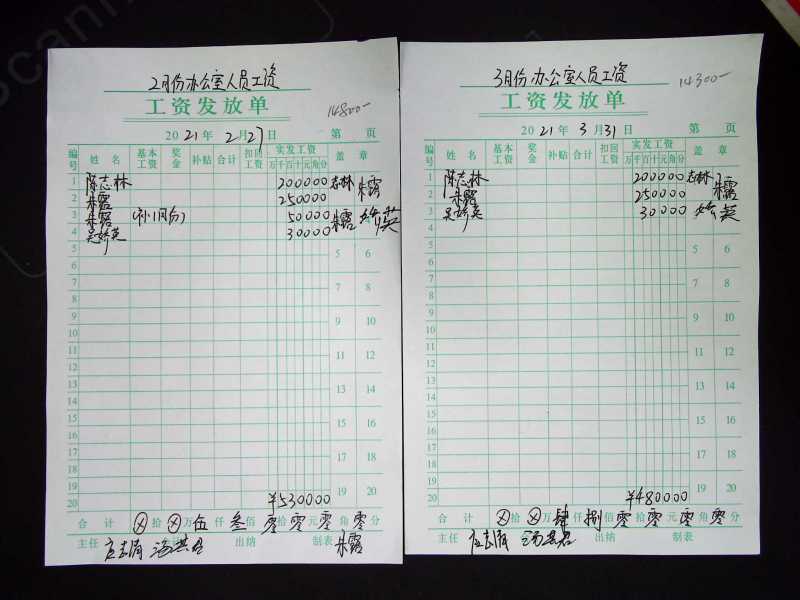 2月份办公室人员工资
工资发放单
14800-
2021年2月27日 第 页
编号 姓名 基本工资 奖金 补贴 合计 扣回工资 实发工资 盖章
万千百十元角分
1 陈志林 200000 志林
2 朱露 250000 朱露
3 朱露 (补1月份) 50000 朱露
4 吴娇英 30000 娇英
5 5 6
6
7 7 8
8
9 9 10
10
11 11 12
12
13 13 14
14
15 15 16
16
17 17 18
18
19 19 20
20 ¥530000
合计 ⊗拾⊗万伍仟叁佰零拾零元零角零分
主任 出纳 制表 朱露
3月份办公室人员工资
工资发放单
14300-
2021年3月31日 第 页
编号 姓名 基本工资 奖金 补贴 合计 扣回工资 实发工资 盖章
万千百十元角分
1 陈志林 200000 志林
2 朱露 250000 朱露
3 吴娇英 30000 娇英
4
5 5 6
6
7 7 8
8
9 9 10
10
11 11 12
12
13 13 14
14
15 15 16
16
17 17 18
18
19 19 20
20 ¥480000
合计 ⊗拾⊗万肆仟捌佰零拾零元零角零分
主任 出纳 制表